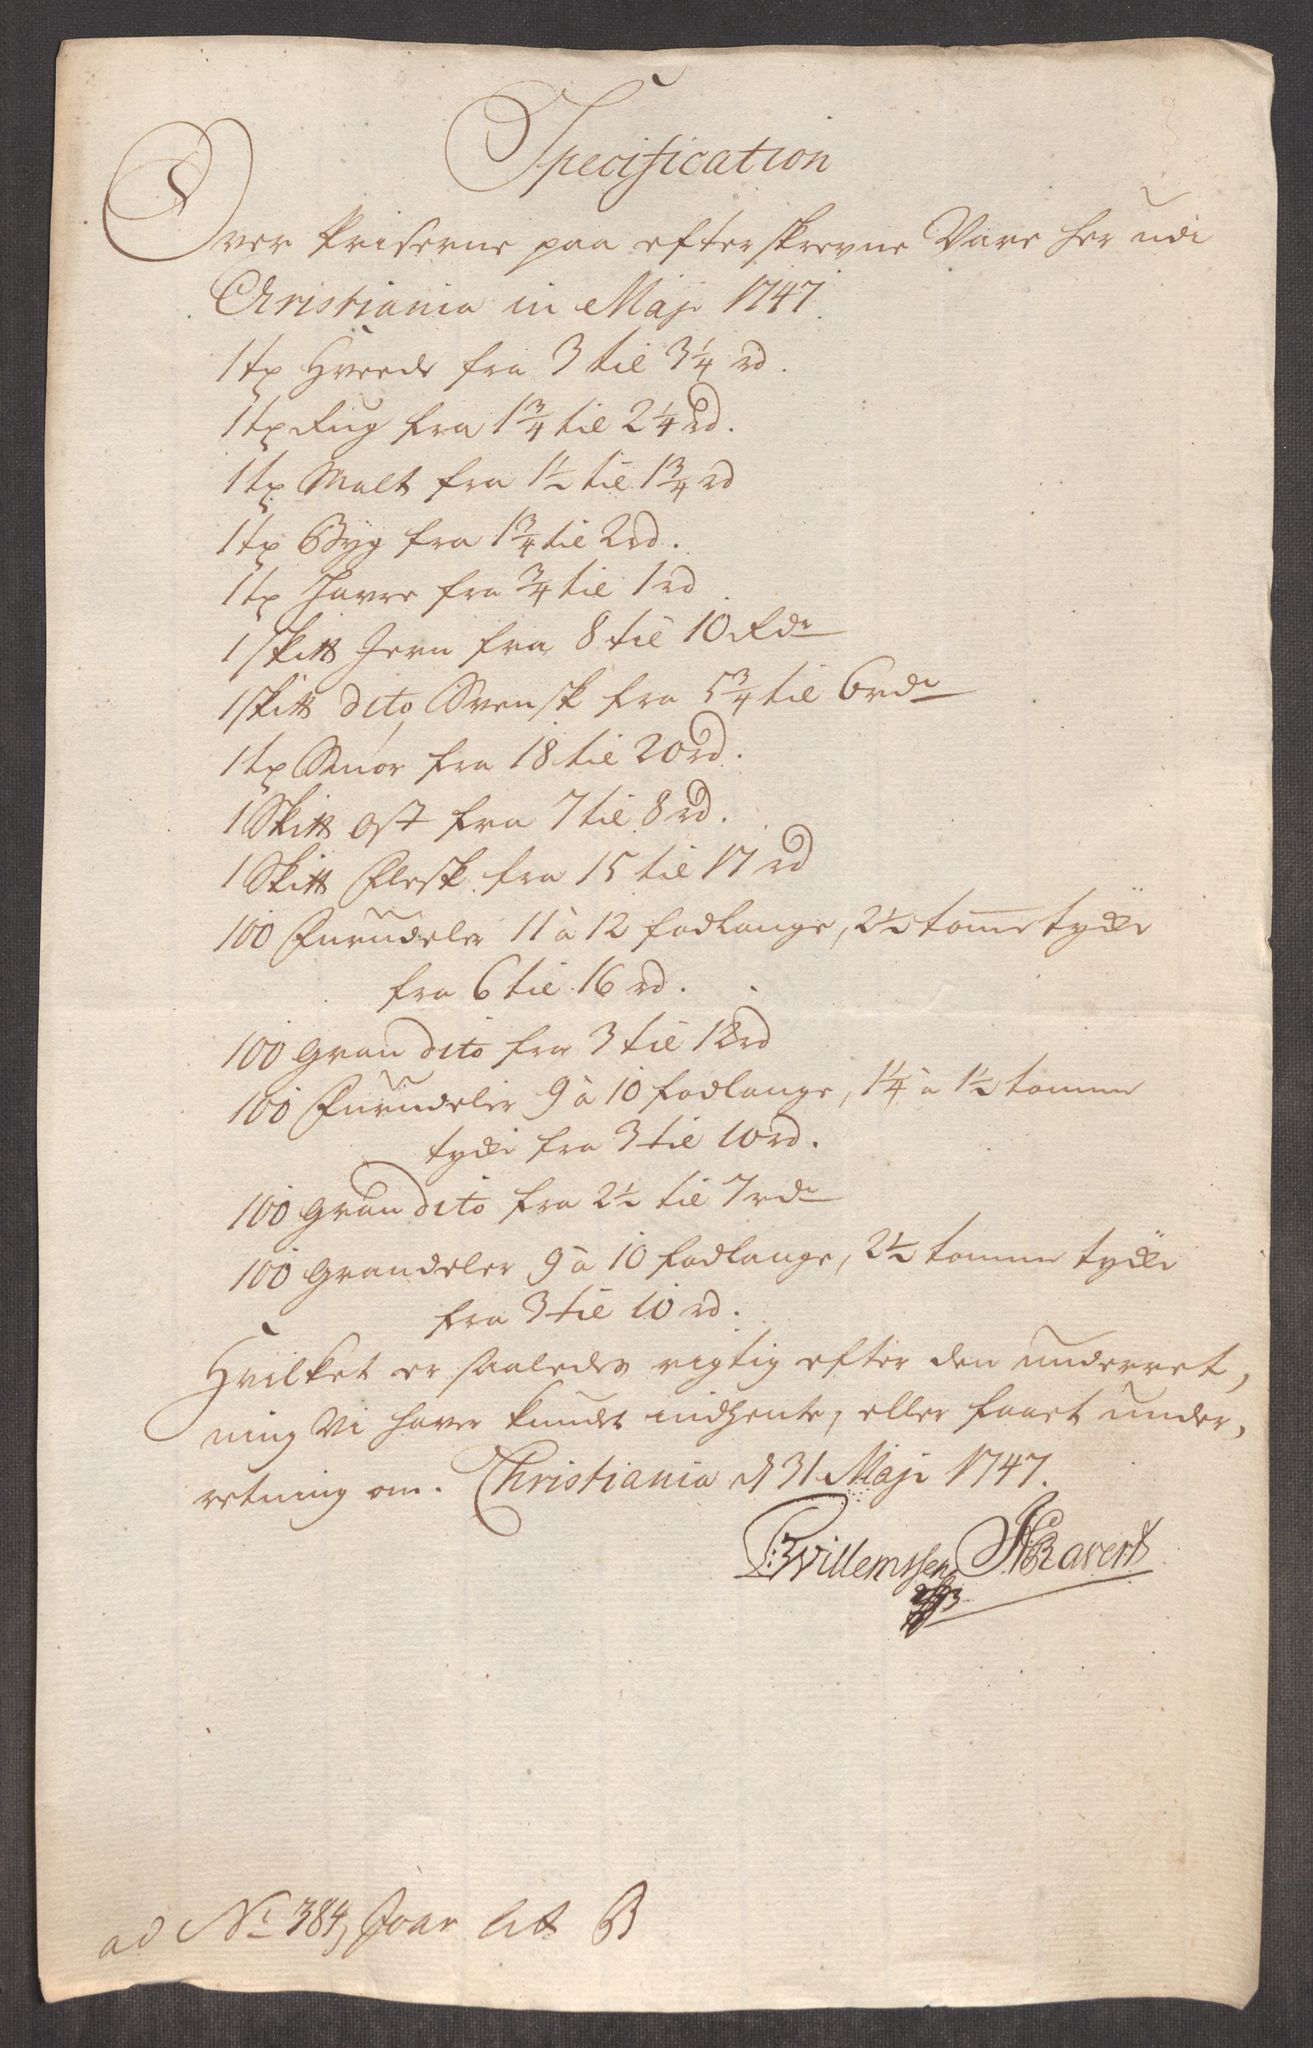 Specification
Over Priserne paa efterskrevne Vare her udi
Christiania in Maji 1747.
1 tp Hveede fra 3 til 3 1/4 rd.
1 tp Rug fra 1 3/4 til 2 1/4 rd.
1 tp Malt fra 1 1/2 til 1 3/4 rd
1 tp Byg fra 1 3/4 til 2 rd.
1 tp Havre fra 3/4 til 1 rd
1 skitt Jern fra 8 til 10 Rdr
1 skitt dito Svensk fra 5 3/4 til 6 rdr
1 tp Smør fra 18 til 20 rd.
1 Skitt Ost fra 7 til 8 rd.
1 Skitt Flesk fra 15 til 17 rd
100 Furudeler 11 à 12 fodlange, 2 1/2 tomme tyke
fra 6 til 16 rd.
100 Gran dito fra 3 til 12 rd
100 Furudeler 9 à 10 fodlange, 1 1/4 à 1 1/2 tomme
tyke fra 3 til 10 rd.
100 Gran dito fra 2 1/2 til 7 rdr
100 Grandeler 9 à 10 fodlange, 2 1/2 tomme tyke
fra 3 til 10 rd.
Hvilket er saaledes rigtig efter den underret,
ning Vi haver kundet indhente, eller faaet under,
retning om. Christiania d 31 Maji 1747.
Willemssen Ravert
ad No 384, Joar Lit B